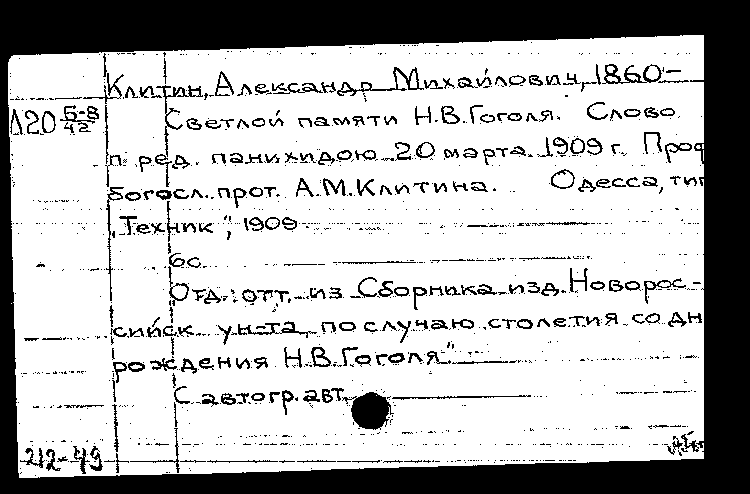 Клитин, Александр Михайлович, 1860-
Л20 Б-8/42
Светлой памяти Н.В.Гоголя. Слово
п. ред. панихидою 20 марта 1909 г. Проф
богосл. прот. А.М.Клитина. Одесса, тип
„Техник", 1909
6с
„Отд. отт. из Сборника изд. Новорос-
сийск ун-та, по случаю столетия со дн
рождения Н.В.Гоголя"
С автогр. авт.
212-49